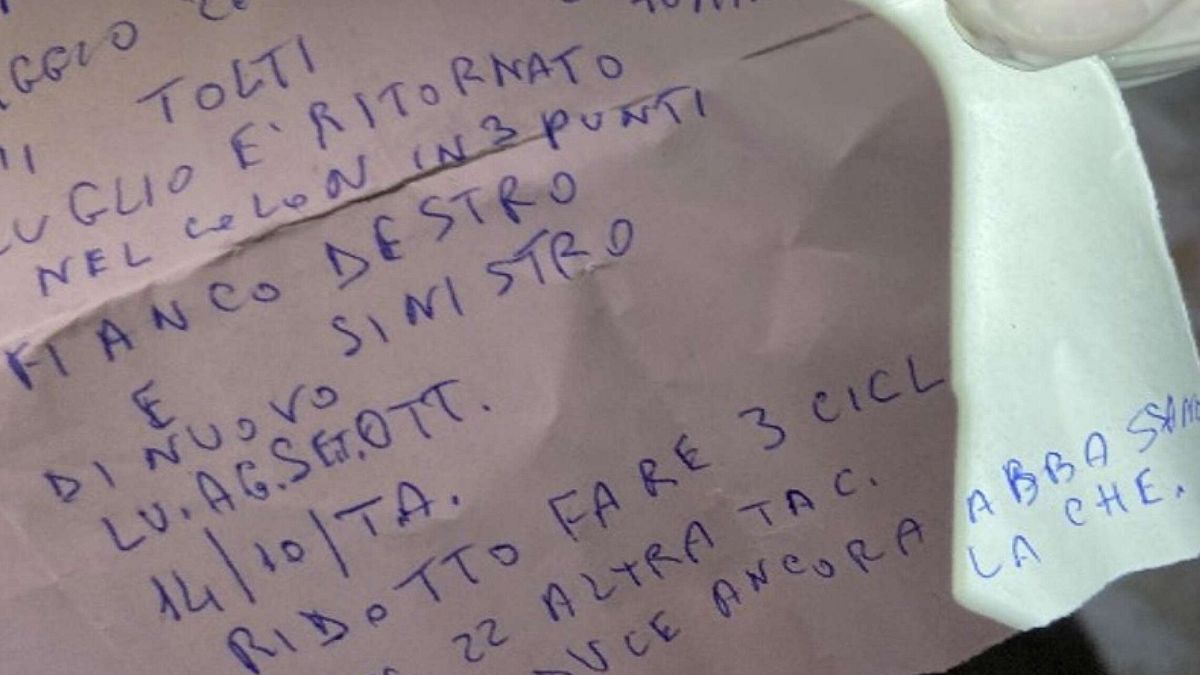 TOLTI
LUGLIO E' RITORNATO
NEL COLON IN 3 PUNTI
FIANCO DESTRO
E SINISTRO
DI NUOVO
LU.AG.SET.OTT.
14/10/TA.
RIDOTTO FARE 3 CICL
22 ALTRA TAC.
ANCORA ABBASSAM
LA CHE.